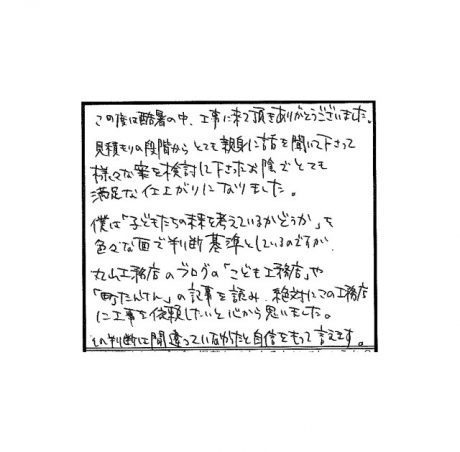 この度は酷暑の中、工事に来て頂きありがとうございました。
見積もりの段階から とても親身に話を聞いて下さって
様々な案を検討して下さったお陰でとても
満足な仕上がりになりました。
僕は「子どもたちの未来を考えているかどうか」を
色々な面で判断基準としているのですが、
丸山工務店のブログの「こども工務店」や
「町たんけん」の記事を読み、絶対にこの工務店
に工事を依頼したいと心から思いました。
その判断は間違っていなかったと自信をもって言えます。